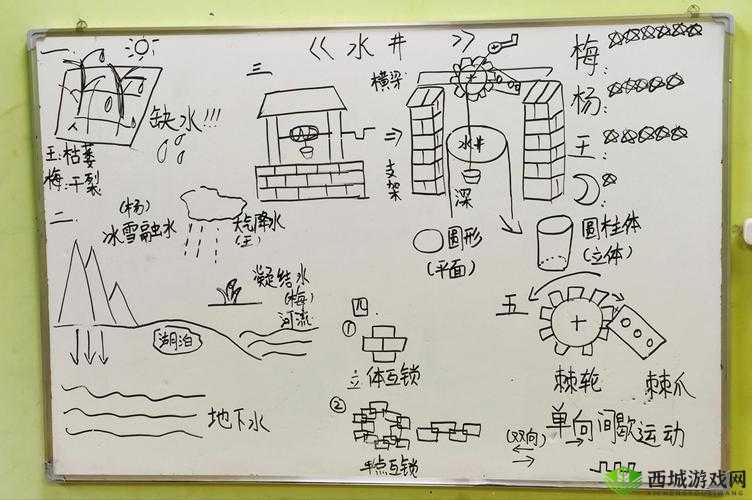 《水井》
一、
缺水!!!
王:枯萎
梅:干裂
二、
(杨)
冰雪融水
天气降水
(王)
凝结水
(梅)
河流
湖泊
地下水
三
横梁
支架
水井
深
圆形
(平面)
圆柱体
(立体)
四、
①
立体互锁
②
平点互锁
五
棘轮
棘爪
单向间歇运动
(双向)
梅:
杨:
王:
西城游戏网
XICHENGYOUXIWANG